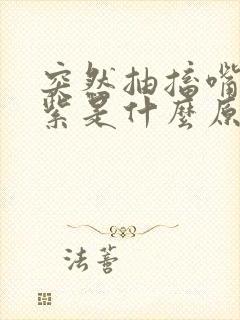 突然抽搐嘴
紫是什麼原
法善